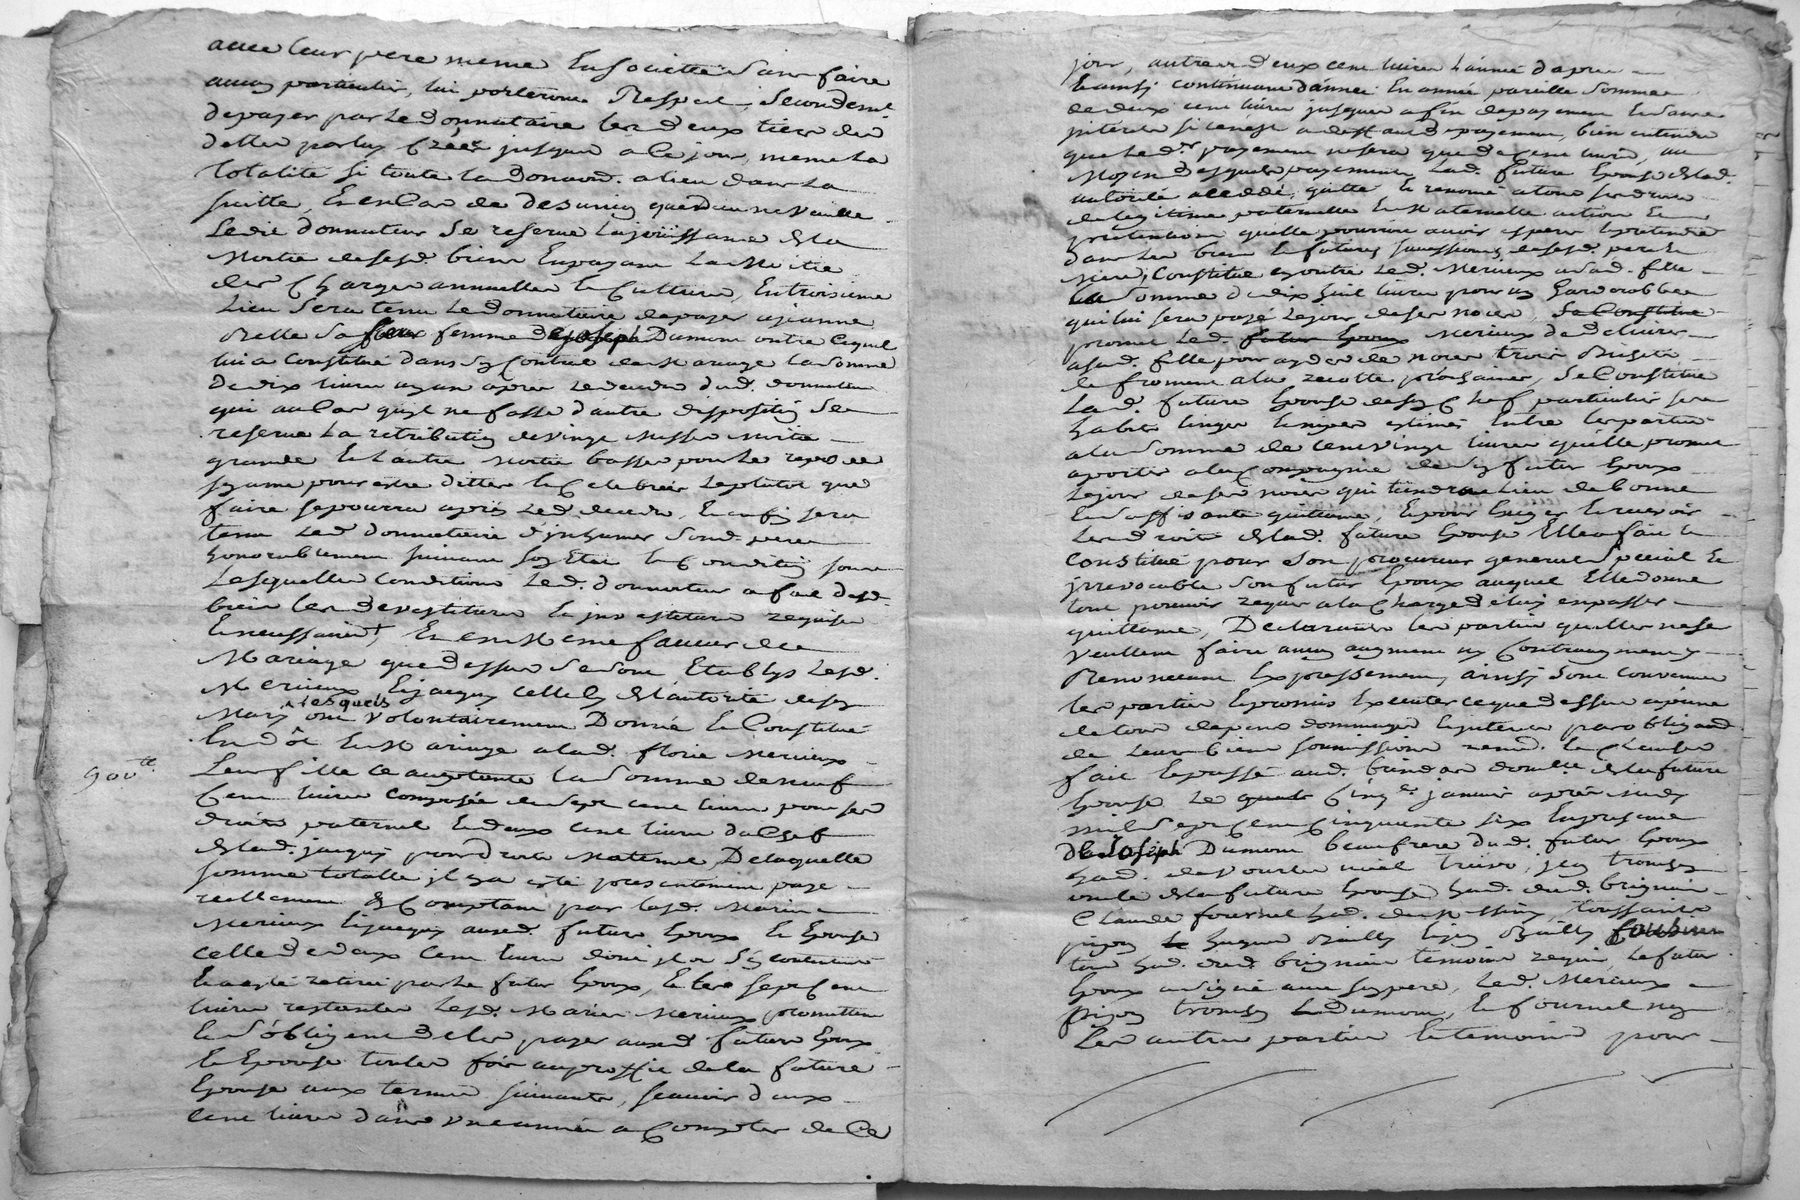 avec leur pere meme En societté sans faire
aucun particulier, lui porteront Respect, Secondemt
de payer par Le donnataire les deux tiers des
dettes par luy Créés jusques a Ce jour, meme La
totalité si toute la donaon. a lieu dans La
suitte, Et en Cas de desunion que Dieu ne veuille
Ledit donnateur Se reserve La joüissance de La
Moitié de sesd. biens En payant La Moitié
des Charges annuelles Et Cultures, En troisieme
Lieu Sera tenu Le donnataire de payer a jeanne
sa soeur femme de joseph Dumont outre Ce quil
lui a Constitué dans son Contrat de Mariage La Somme
de dix livres un an apres Le deces dud. donnateur
qui au Cas quil ne fasse d'autre disposition Se
reserve La retribution de vingt Messes moitié
grandes Et L'autre Moitié basses pour Le repos de
son ame pour estre dittes Et Celebrées Le plutot que
faire se pourra après Led. deces, Et enfin sera
tenu Led. donnataire d'inhumer Sond. pere
honorablement suivant son Etat Et Condition sous
Lesquelles Conditions Led. donnateur a fait desd.
biens Les devestitures Et investitures requises
Et necessaires, Et en Meme faveur de
Mariage que dessus Se sont Etablys Lesd.
Merieux Et jacquy Celle Cy de L'autorité de son
Mary lesquels ont volontairement Donné Et Constitué
En dôt Et Mariage a lad. florie Merieux
Leur fille Ce acceptante La Somme de neuf
900tt
Cent livres Composée de Sept cent livres pour ses
droits paternels Et deux Cent livres du Chef
de lad. jacquy pour droits Maternels, De laquelle
somme totalle il en a esté presentement payé
reellement & Comptant par Lesd. Mariés
Merieux Et jacquy auxd. futurs Epoux Et Epouse
Celle de deux Cent livres dont ils se Contentent
Et a esté retiré par Le futur Epoux, Et Les Sept Cent
livres restantes Lesd. Mariés Merieux promettent
Et s'obligent de Les payer auxd. futurs Epoux
Et Epouse toutes fois au proffit de La future
Epouse aux termes suivants, scavoir deux
Cent livres dans une année a Compter de Ce
jour, autres deux cent livres L'année d'apres
Et ainsi Continuant d'année En année pareille Somme
de deux cent livres jusques a fin de payement Et sans
interets si ce n'est a deffaut de payement, bien entendu
que Le dr. payement ne sera que de Cent livres, au
Moyen desquels payements Lad. future Epouse de lad.
autorité a Cedé, quitté Et renoncé a tous ses droits
de legitime paternelle Et Maternelle action Et
pretention quelle pourroit avoir esperer Et pretendre
dans Les biens Et futures successions de sesd. pere Et
Mere, Constitue En outre Led. Merieux a sad. fille
La Somme de dix huit livres pour un Garderobbe
qui lui sera payé Le jour de ses noces,
promet Led. Merieux de delivrer
a sad. fille pour ayde de noces trois Bichets
de froment a la recolte prochaine, Se Constitue
Lad. future Epouse de son Chef particulier ses
habits linges Et nipes estimés Entre Les parties
a la Somme de Cent vingt livres quelle promet
aporter a la Compagnie de son futur Epoux
Le jour de ses noces qui tiendra Lieu de bonne
Et suffisante quittance, Et pour Exiger Et recevoir
Les droits de lad. future Epouse Elle a fait Et
Constitué pour Son procureur general Special Et
irrevocable Son futur Epoux auquel Elle donne
tout pouvoir requis a la Charge de luy en passer
quittance, Declarants Les parties quelles ne se
veullent faire aucun augment ny Contraugment y
Renonceant Expressement, ainsi Sont Convenues
Les parties Et promis Executer ce que dessus a peine
de tous depens dommages Et interets par obligaon.
de Leurs biens soumissions renon. Et Clauses
fait Et passé aud. brindas domlle. de la future
Epouse Le Cinqe. janvier après Midy
mil Sept Cent Cinquante Six En presence
de joseph Dumont beaufrere dud. futur Epoux
oncle de La future Epouse
Claude fournel
tous had. dud. temoins requis, Le futur
Epoux a signé avec son pere, Led. Merieux
Dumont, Et fournel non
Les autres parties Et temoins pour